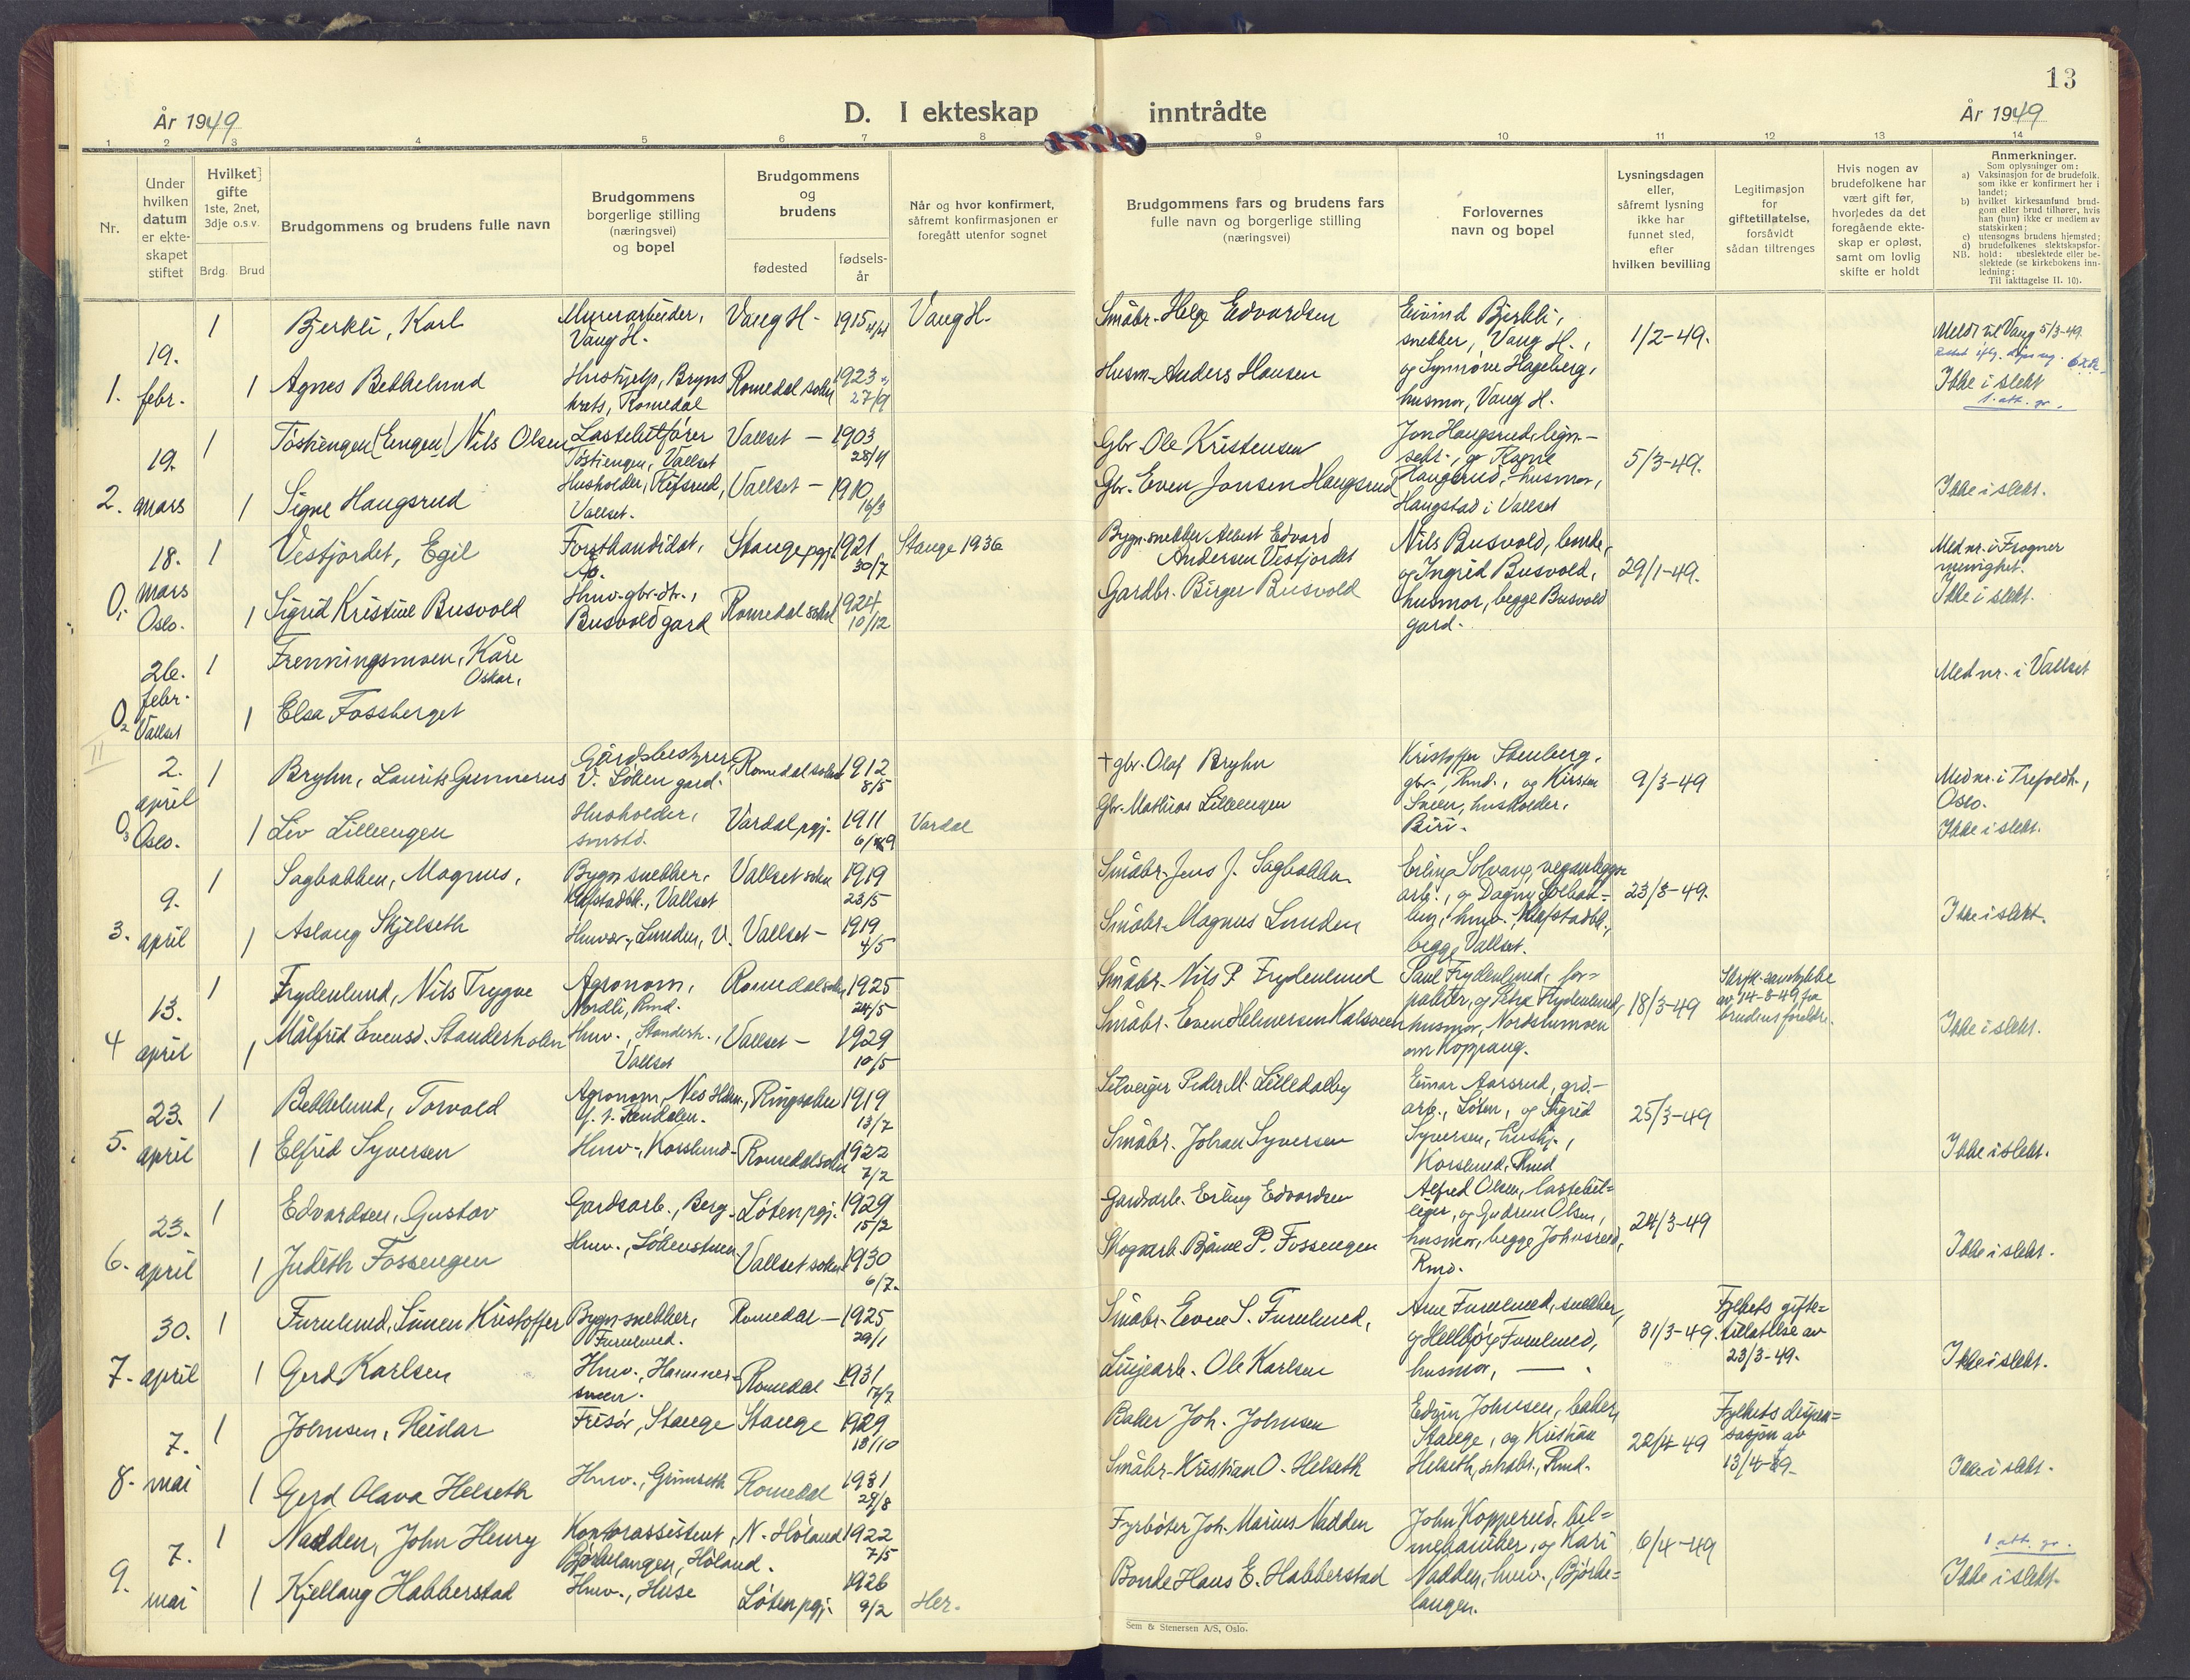 13
År 1949
D. I ekteskap inntrådte
År 1949
1 2 3 4 5 6 7 8 9 10 11 12 13 14
Nr.
Under hvilken datum er ekteskapet stiftet
Hvilket gifte 1ste, 2net, 3dje o.s.v.
Brdg. Brud
Brudgommens og brudens fulle navn
Brudgommens borgerlige stilling (næringsvei) og bopel
Brudgommens og brudens
fødested
fødsels-år
Når og hvor konfirmert, såfremt konfirmasjonen er foregått utenfor sognet
Brudgommens fars og brudens fars fulle navn og borgerlige stilling (næringsvei)
Forlovernes navn og bopel
Lysningsdagen eller, såfremt lysning ikke har funnet sted, efter hvilken bevilling
Legitimøsjon for giftetillatelse, forsåvidt sådan tiltrenges
Hvis nogen av brudefolkene har vært gift før, hvorledes da det foregående ekteskap er opløst, samt om lovlig skifte er holdt
Anmerkninger.
Som oplysninger om:
a) Vaksinasjon for de brudefolk, som ikke er konfirmert her i landet;
b) hvilket kirkesamfund brudgom eller brud tilhører, hvis han (hun) ikke er medlem av statskirken;
c) utensogns brudens hjemsted;
d) brudefolkenes slektskapsforhold: ubeslektede eller beslektede (se kirkebokens innledning:
NB.
Til iakttagelse II. 10).
1. 19. febr.
1 Bjerkli, Karl
Murerarbeider, Vang H.
Vang H. 1915 4/4
Vang H.
Småbr. Helge Edvardsen
Eivind Bjerkli, snekker, Vang H., og Synnøve Hageberg, husmor, Vang H.
1/2-49.
Meldt til Vang 5/3-49.
1 Agnes Bekkelund
Hushjelp, Romedal
Romedal sokn 1923 27/9
Husm. Anders Hansen
Ikke i slekt
1. att. gr.
2. 19. mars
1 Tøstiengen (Engen) Nils Olsen
Lastebilfører Tøstiengen, Vallset
Vallset — 1903 28/4
Gbr. Ole Kristensen
Jon Haugsrud, og Ragna Haugsrud, husmor, Haugstad i Vallset
5/3-49.
1 Signe Haugsrud
Husholder, Vallset.
Vallset — 1910 16/3
Gbr. Even Jonsen Haugsrud
Ikke i slekt.
0,1 18. mars Oslo.
1 Vestjordet, Egil
Forstkandidat, Ås.
Stange pgj. 1921 30/7
Stange 1936
Bygn.snekker Albert Edvard Andersen Vestjordet
Nils Busvold, og Ingrid Busvold, husmor, begge Busvold gard.
29/1-49.
Med nr. i Frogner menighet.
1 Sigrid Kristine Busvold
Hmv. gbr.dtr., Busvold gard
Romedal sokn 1924 10/12
Gardbr. Birger Busvold
Ikke i slekt.
02 26. febr. Vallset
1 Frenningsmoen, Kåre Oskar,
1 Elsa Fossberget
Med nr. i Vallset
11
03 2. april Oslo.
1 Bryhn, Laurits Gunnerus
Gårdsbestyrer, V. Løken gard.
Romedal sokn 1912 8/5
+ gbr. Olaf Bryhn
Kristoffer Stenberg, gbr., Rmd., og Kirsten Sveen, husholder, Biri.
9/3-49
Med nr. i Trefoldh., Oslo.
1 Liv Lilleengen
Husholder, smstd.
Vardal pgj. 1911
Vardal
Gbr. Mathias Lilleengen
Ikke i slekt.
3. 9. april
1 Sagbakken, Magnus,
Bygn.snekker, Vallset
Vallset sokn 1919 23/5
Småbr. Jens J. Sagbakken
Erling Solvang, og Dagny Solbakken, hmv. begge Vallset.
23/3-49.
1 Aslaug Skjelseth
Lunden, V.
Vallset — 1919 4/5
Småbr. Magnus Lunden
Ikke i slekt.
4 13. april
1 Frydenlund, Nils Trygve
Agronom, Nordli, Rmd.
Romedal sokn 1925 24/5
Småbr. Nils P. Frydenlund
Paul Frydenlund, forpakter, og Frydenlund, husmor, Nordstumoen om Koppang.
18/3-49
Skrftl. samtykke av 14-3-49 fra brudens foreldre.
1 Målfrid Evensd. Standerholen
Hmv., Standerh., Vallset
Vallset — 1929 10/5
Småbr. Even Helmersen Kalsveen
Ikke i slekt.
5. 23. april
1 Bekkelund, Torvald
Agronom, Nes Hdm., f. t. Rendalen.
Ringsaker 1919 13/7
Selveier Peder M. Lilledalby
Einar Aarsrud, arb., Løten, og Sigrid Syversen, hushj., Korslund, Rmd
25/3-49
1 Elfrid Syversen
Hmv., Korslund
Romedal sokn 1922 7/2
Småbr. Johan Syversen
Ikke i slekt.
6. 23. april
1 Edvardsen, Gustav
Gardsarb., Berg
Løten pgj. 1929 15/2
Gardsarb. Erling Edvardsen
Alfred Olsen, lastebileier, og Gudrun Olsen, husmor, begge Johnsrud, Rmd.
24/3-49
1 Judith Fossengen
Hmv., Løkenstuen
Vallset sokn 1930 6/7.
Skogsarb. Bjarne P. Fossengen
Ikke i slekt.
7. 30. april
1 Furulund, Simen Kristoffer
Bygn.snekker, Furulund.
Romedal — 1925 29/1
Småbr. Even S. Furulund,
Arne Furulund, snekker, og Hellbjørg Furulund, husmor, —
31/3-49.
Fylkets giftetillatelse av 23/3-49.
1 Gerd Karlsen
Hmv., Hammersveen.
Romedal 1931 17/7
Linjearb. Ole Karlsen
Ikke i slekt.
8. 7. mai
1 Johnsen, Reidar
Frisør, Stange
Stange 1929 13/10
Baker Joh. Johnsen
Edvin Johnsen, baker, Stange, og Kristian Helseth, småbr., Rmd.
22/4 49
Fylkets dispensasjon av 13/4-49.
1 Gerd Olava Helseth
Hmv., Grimseth
Romedal 1931 29/8
Småbr. Kristian O. Helseth
Ikke i slekt.
9. 7. mai
1 Nadden, John Henry
Kontorassistent, Bjørkelangen, Høland.
N. Høland 1922 7/5
Fyrbøter Joh. Marius Nadden
John Kopperud, bilmekaniker, og Kari Nadden, hmv., Bjørkelangen.
6/4-49
1 att. gr.
1 Kjellaug Habberstad
Hmv., Huse
Løten pgj. 1926 9/2
Her.
Bonde Hans E. Habberstad
Ikke i slekt.
Sem & Stenersen A/S, Oslo.